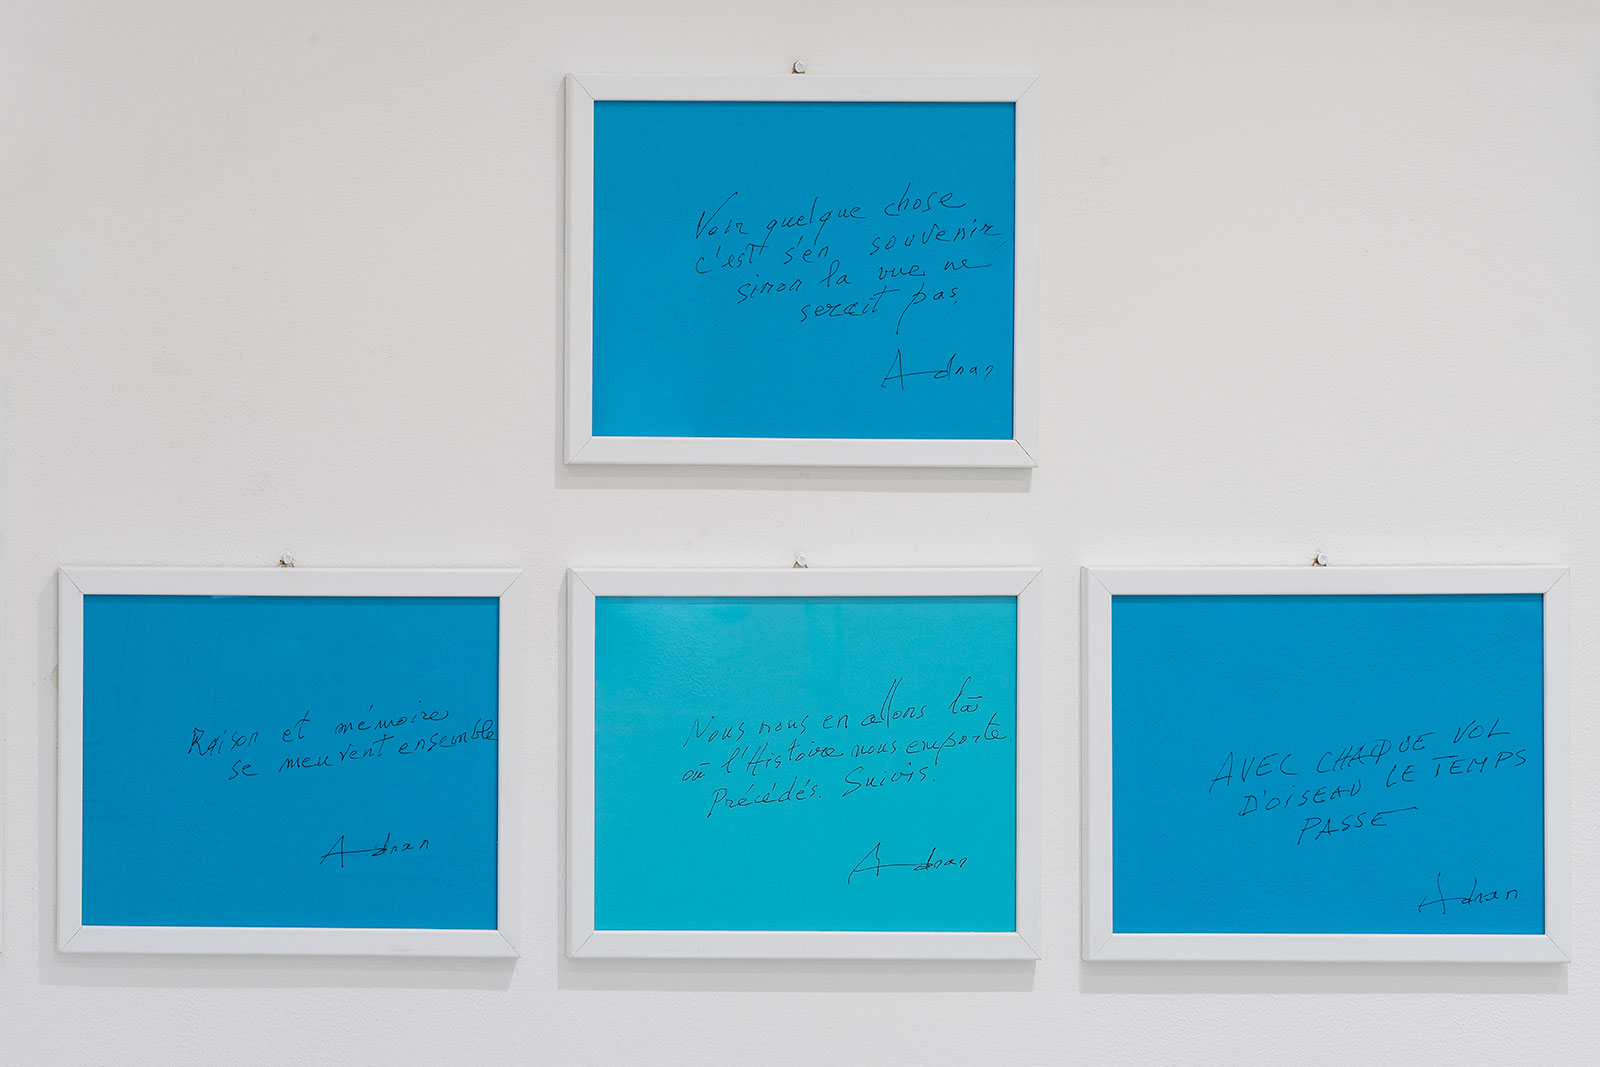 Voir quelque chose
c'est s'en souvenir,
sinon la vue ne
serait pas.
Adnan
Raison et mémoire
se meuvent ensemble
Adnan
Nous nous en allons là
où l'Histoire nous emporte
Précédés. Suivis.
Adnan
AVEC CHAQUE VOL
D'OISEAU LE TEMPS
PASSE
Adnan